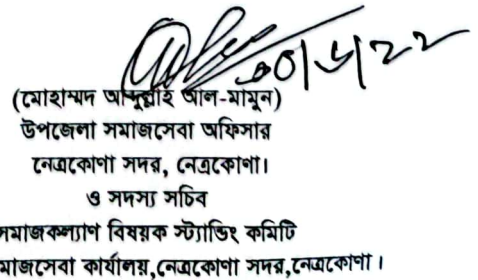 ৩০/৬/২২
(মোহাম্মদ আব্দুল্লাহ আল-মামুন)
উপজেলা সমাজসেবা অফিসার
নেত্রকোণা সদর, নেত্রকোণা।
ও সদস্য সচিব
সমাজকল্যাণ বিষয়ক স্ট্যান্ডিং কমিটি
মাজসেবা কার্যালয়,নেত্রকোণা সদর,নেত্রকোণা।